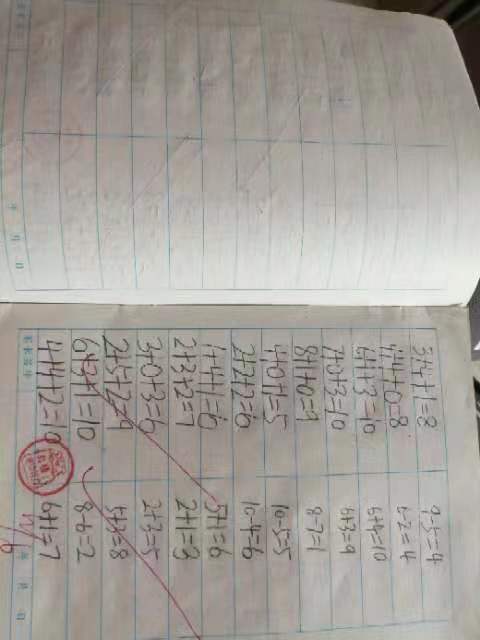 3+4+1=8 9-5=4
4+4+0=8 6-2=4
6+1+3=10 6+4=10
7+0+3=10 6+3=9
8+1+0=9 8-7=1
4+0+1=5 10-5=5
2+2+2=6 10-4=6
1+4+1=6 5+1=6
2+3+2=7 2+1=3
3+0+3=6 2+3=5
2+5+2=9 5+3=8
6+3+1=10 8-6=2
4+4+2=10 6+1=7